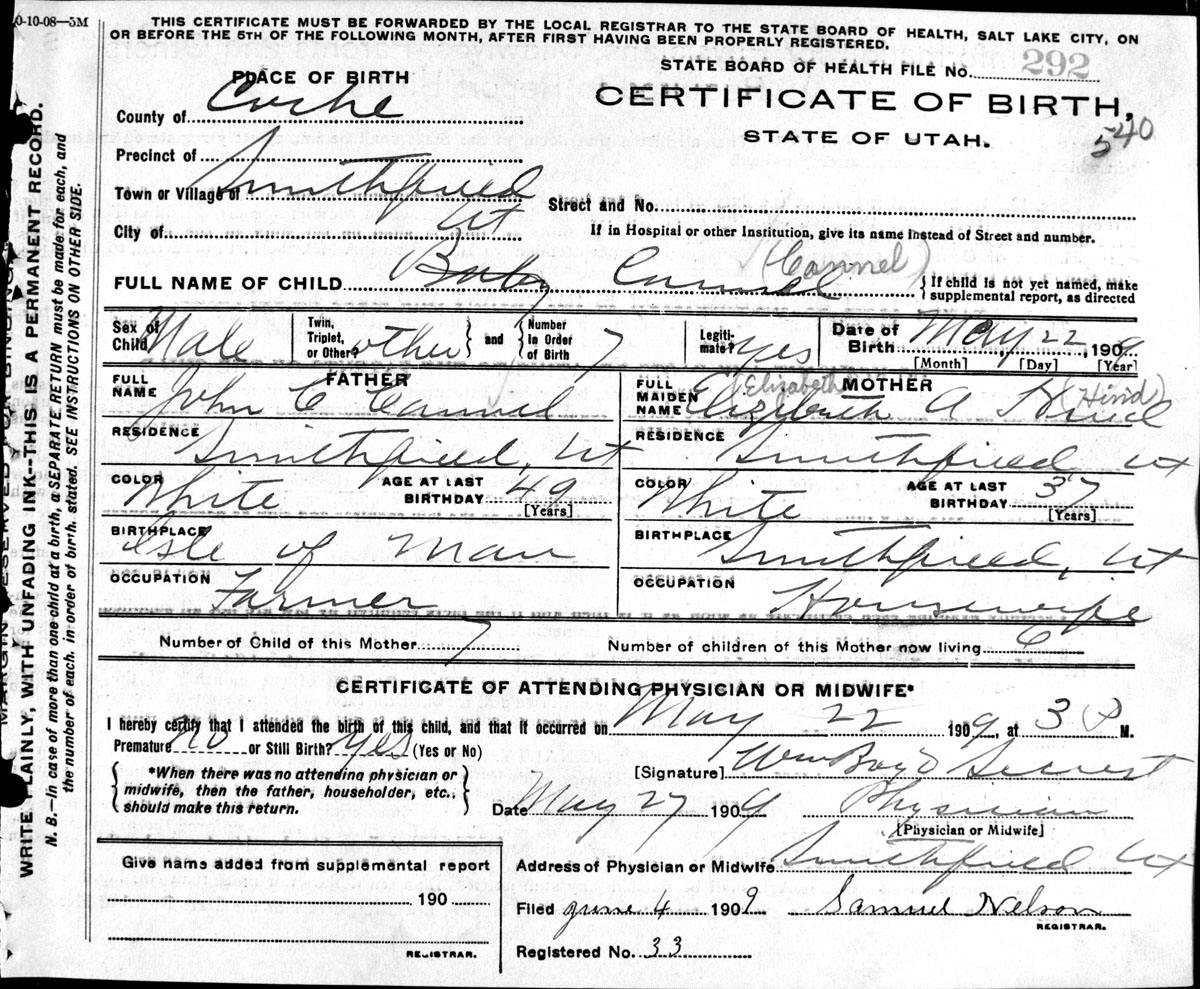 0-10-08—5M
THIS CERTIFICATE MUST BE FORWARDED BY THE LOCAL REGISTRAR TO THE STATE BOARD OF HEALTH, SALT LAKE CITY, ON
OR BEFORE THE 5TH OF THE FOLLOWING MONTH, AFTER FIRST HAVING BEEN PROPERLY REGISTERED.
STATE BOARD OF HEALTH FILE No. 292
PLACE OF BIRTH
CERTIFICATE OF BIRTH,
STATE OF UTAH.
540
County of Cache
Precinct of
Town or Village of Smithfield
Street and No.
City of Ut
If in Hospital or other Institution, give its name instead of Street and number.
FULL NAME OF CHILD Baby Cannel (Cannel)
{ If child is not yet named, make
supplemental report, as directed
Sex of Child Male
Twin, Triplet, or Other? other } and { Number in Order of Birth 7
Legiti-mate? yes
Date of Birth May 22, 1909
[Month] [Day] [Year]
FATHER
FULL NAME John C Cannel
RESIDENCE Smithfield, Ut
COLOR White
AGE AT LAST BIRTHDAY 49
[Years]
BIRTHPLACE Isle of Man
OCCUPATION Farmer
MOTHER
FULL MAIDEN NAME Elizabeth A Hind (Elizabeth) (Hind)
RESIDENCE Smithfield Ut
COLOR White
AGE AT LAST BIRTHDAY 37
[Years]
BIRTHPLACE Smithfield, Ut
OCCUPATION Housewife
Number of Child of this Mother 7
Number of children of this Mother now living 6
CERTIFICATE OF ATTENDING PHYSICIAN OR MIDWIFE*
I hereby certify that I attended the birth of this child, and that it occurred on May 22 1909, at 3 P M.
Premature no or Still Birth? Yes (Yes or No)
{ *When there was no attending physician or
midwife, then the father, householder, etc.,
should make this return. }
[Signature] Wm Boyd Secrist
Date May 27 1909 Physician
[Physician or Midwife]
Give name added from supplemental report
190
REGISTRAR.
Address of Physician or Midwife Smithfield Ut
Filed june 4 1909 Samuel Nelson
REGISTRAR.
Registered No. 33
WRITE PLAINLY, WITH UNFADING INK--THIS IS A PERMANENT RECORD.
N. B.—In case of more than one child at a birth, a SEPARATE RETURN must be made for each, and
the number of each, in order of birth, stated. SEE INSTRUCTIONS ON OTHER SIDE.